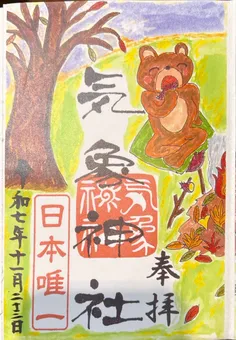 奉拝
気象神社
気象神社
日本唯一
和七年十一月二十三日